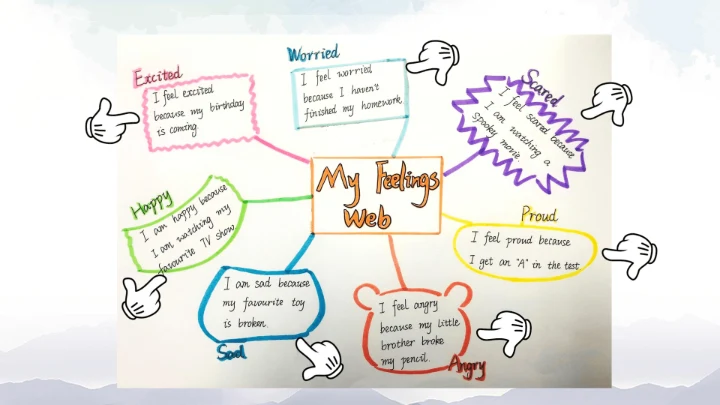 My Feelings
Web
Excited
I feel excited
because my birthday
is coming.
Worried
I feel worried
because I haven't
finished my homework
Scared
I feel scared because
I am watching a
spooky movie.
Happy
I am happy because
I am watching my
favourite TV show
Proud
I feel proud because
I get an "A" in the test
I am sad because
my favourite toy
is broken.
Sad
I feel angry
because my little
brother broke
my pencil.
Angry